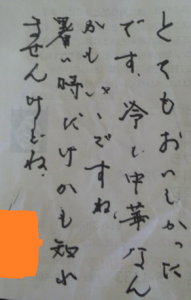 とてもおいしかった
です。冷し中華なん
かもいいですね、
暑い時だけかも知れ
ませんけどね。